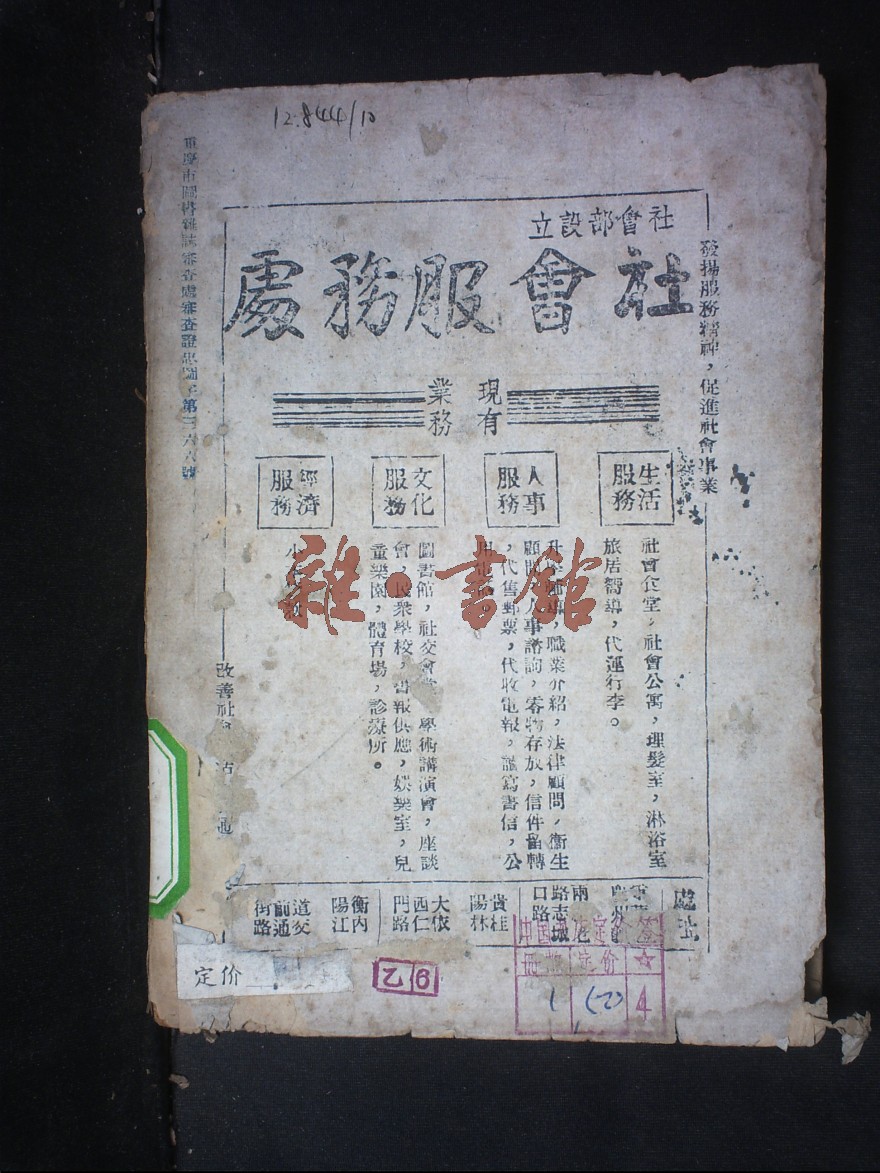 12.844/10
社會部設立
社會服務處
發揚服務精神，促進社會事業
現有
業務
生活
服務
社會食堂，社會公寓，理髮室，淋浴室
旅居嚮導，代運行李。
人事
服務
職業介紹，法律顧問，衞生
顧問，人事諮詢，零物存放，信件留轉
，代售郵票，代收電報，謹寫書信，公
文化
服務
圖書館，社交會 學術講演會，座談
會，民衆學校，書報供應，娛樂室，兒
童樂園，體育場，診療所。
經濟
服務
小
改善社會
處址
兩
路
口
貴桂
陽林
大依
西仁
門路
衡內
陽江
道交
前通
街路
審查處審查證 第三六六號
雜·書館
定价
乙6
中国 定 签
册 定价 ☆
4